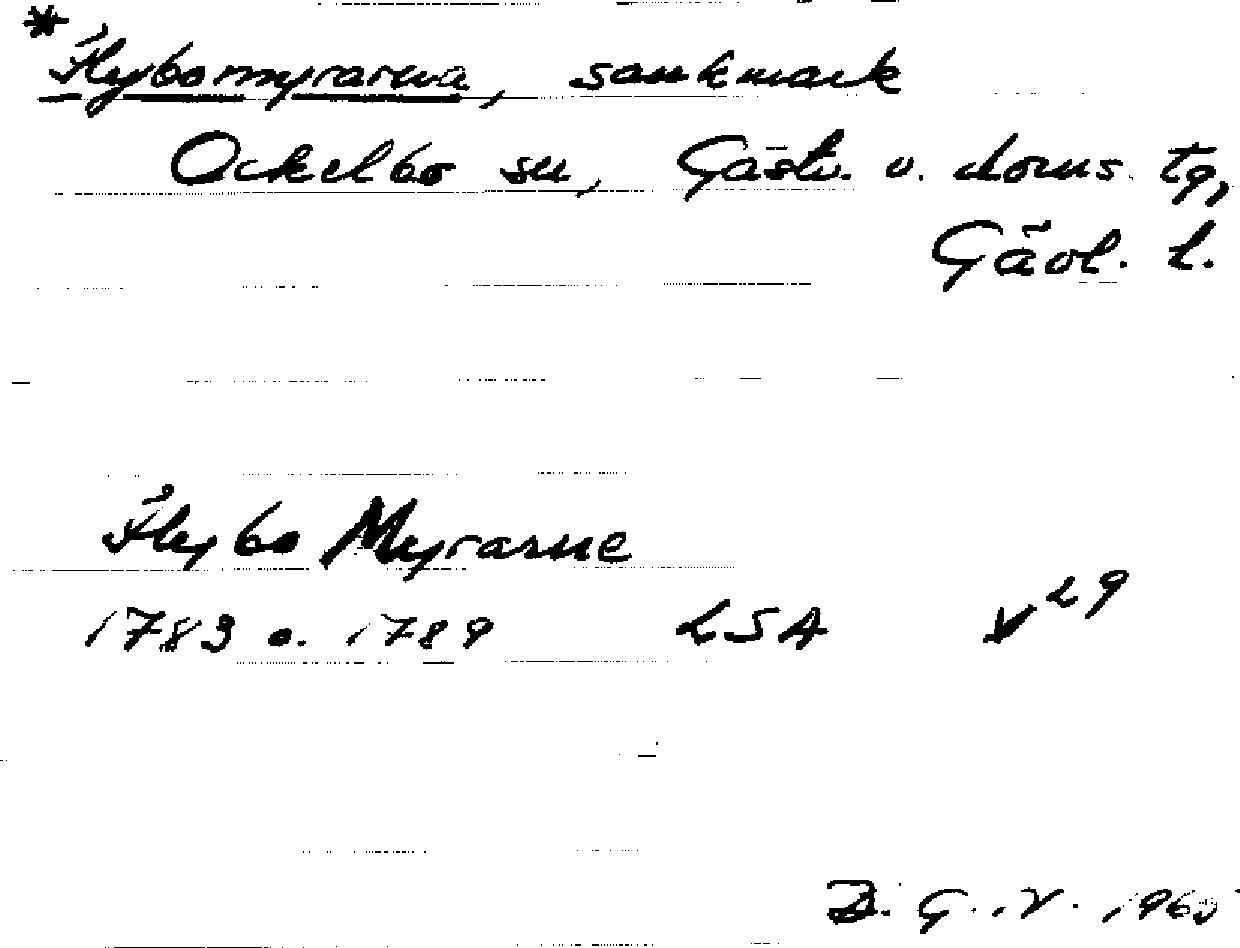 *Flybomyrarna, sankmark
Ockelbo sn, Gästr. v. doms. tg,
Gävl. l.
Flybo Myrarne
1783 o. 1789 LSA V 29
B. G. V. 1960